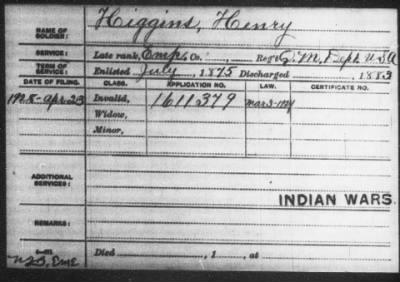 NAME OF SOLDIER: Higgins, Henry
SERVICE: Late rank, Emp, Co. , Reg't Q. M. Dept. U.S.A
TERM OF SERVICE: Enlisted July , 1875 Discharged , 1883
DATE OF FILING. CLASS. APPLICATION NO. LAW. CERTIFICATE NO.
1928-Apr-23 Invalid, 1611379 Mar 3-1927
Widow,
Minor,
ADDITIONAL SERVICES:
INDIAN WARS.
REMARKS:
Died , 1 , at